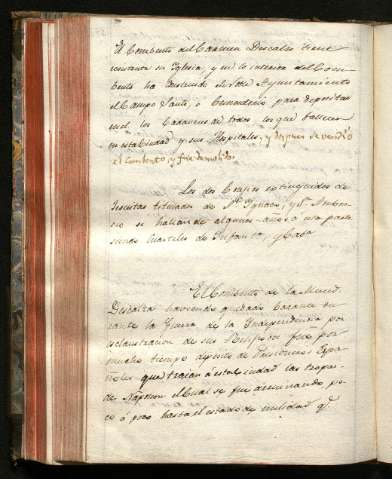 El Combento del Carmen Descalso tiene
constante su Iglesia, y en lo interior del Com-
bento ha construido el Ayuntamiento
el Campo Santo, o Cementerio para depositar
en el los Cadaveres de todos los que fallecen
en esta Ciudad y sus Hospitales, y despues se vendió
el combento y fue demolido.
Los dos Colejios extinguidos de
Jesuitas titulados de Sn. Ygnacio, y Sn. Ambro-
sio se hallan de algunos años a esta parte
siendo Cuarteles de Infanta, y Caba
El Combento de la Merced
Descalsa haviendo quedado bacante du-
rante la Guerra de la Independencia por
esclaustracion de sus Relijiosos fue por
mucho tiempo deposito de Prisioneros Espa-
ñoles que traian á esta Ciudad las tropas
de Napoleon el Cual se fue arruinando po-
co á poco hasta el estado de nulidad qe